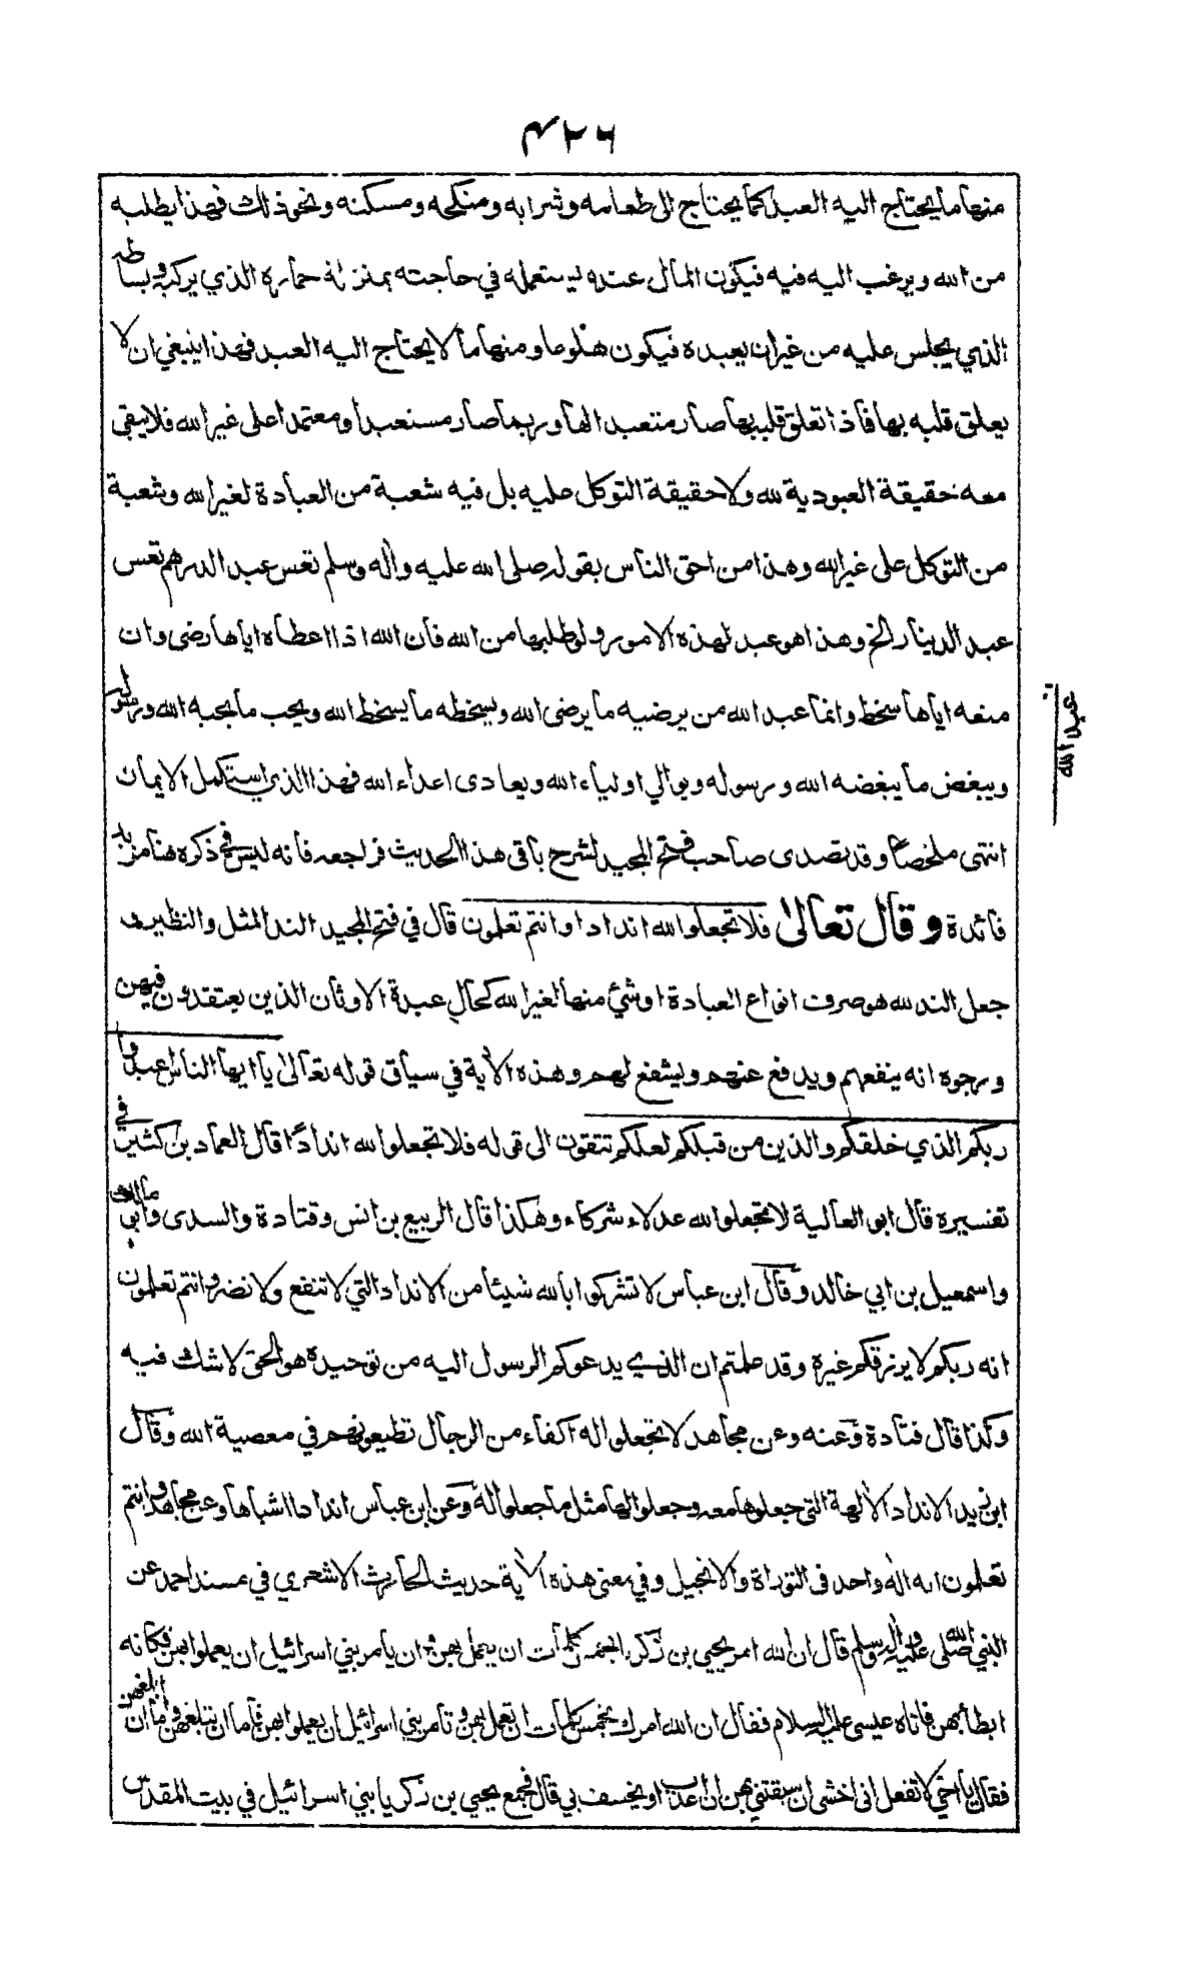 ٤٢٦
منها ما يحتاج اليه العبد كما يحتاج الى طعامه وشرابه ومنكحه ومسكنه ونحو ذلك فهذا يطلبه
من الله ويرغب اليه فيه فيكون المال عنده ليستعمله في حاجته بمنزلة حماره الذي يركبه وبساطه
الذي يجلس عليه من غير ان يعبده فيكون هلوعا ومنها ما لا يحتاج اليه العبد فهذا ينبغي ان لا
يعلق قلبه بها فاذا تعلق قلبه بها صار متعبدا لها وربما صار مستعبدا ومعتمدا على غير الله فلا يبقى
معه حقيقة العبودية لله ولا حقيقة التوكل عليه بل فيه شعبة من العبادة لغير الله وشعبة
من التوكل على غير الله وهذا من احق الناس بقوله صلى الله عليه واله وسلم تعس عبد الدرهم تعس
عبد الدينار الخ وهذا هو عبد لهذه الامور ولو طلبها من الله فان الله اذا اعطاه اياها رضى وان
منعه اياها سخط وانما عبد الله من يرضيه ما يرضى الله ويسخطه ما يسخط الله ويحب ما يحبه الله ورسوله
ويبغض ما يبغضه الله ورسوله ويوالي اولياء الله ويعادى اعداء الله فهذا الذي استكمل الايمان
انتهى ملخصا وقد تصدى صاحب فتح المجيد لشرح باقى هذا الحديث فراجعه فانه ليس في ذكره هنا مزيد
فائدة وقال تعالى فلا تجعلوا لله اندادا وانتم تعلمون قال في فتح المجيد الند المثل والنظير و
جعل الند لله هو صرف انواع العبادة او شئ منها لغير الله كحال عبدة الاوثان الذين يعتقدون فيمن
ورجوه انه ينفعهم ويدفع عنهم ويشفع لهم وهذه الآية في سياق قوله تعالى يا ايها الناس اعبدوا
ربكم الذي خلقكم والذين من قبلكم لعلكم تتقون الى قوله فلا تجعلوا لله اندادًا قال العماد بن كثير في
تفسيره قال ابو العالية لا تجعلوا لله عدلاء شركاء وهكذا قال الربيع بن انس وقتادة والسدى وأبي مالك
واسمعيل بن ابي خالد وقال ابن عباس لا تشركوا بالله شيئا من الانداد التي لا تنفع ولا تضر وانتم تعلمون
انه ربكم لا يرزقكم غيره وقد علمتم ان الذي يدعوكم الرسول اليه من توحيده هو الحق لا شك فيه
وكذا قال قتادة وعنه وعن مجاهد لا تجعلوا له اكفاء من الرجال تطيعونهم في معصية الله وقال
ابن زيد الانداد الآلهة التي جعلوها معه وجعلوا لها مثل ما جعلوا له وعن ابن عباس اندادا اشباها وعن مجاهد وانتم
تعلمون انه اله واحد فى التوراة والانجيل وفي معنى هذه الآية حديث الحارث الاشعري في مسند احمد عن
النبي صلى الله عليه واله وسلم قال ان الله امر يحيي بن زكريا بخمس كلمات ان يعمل بهن وان يأمر بني اسرائيل ان يعملوا بهن فكانه
ابطأ بهن فاتاه عيسى عليه السلام فقال ان الله امرك بخمس كلمات ان تعمل بهن وتأمر بني اسرائيل ان يعملوا بهن فاما ان تبلغهن واما ان ابلغهن
فقال يا اخي لا تفعل انى اخشى ان سبقتني بهن ان اعذب او يخسف بي قال فجمع يحيي بن زكريا بني اسرائيل في بيت المقدس
عبد الله